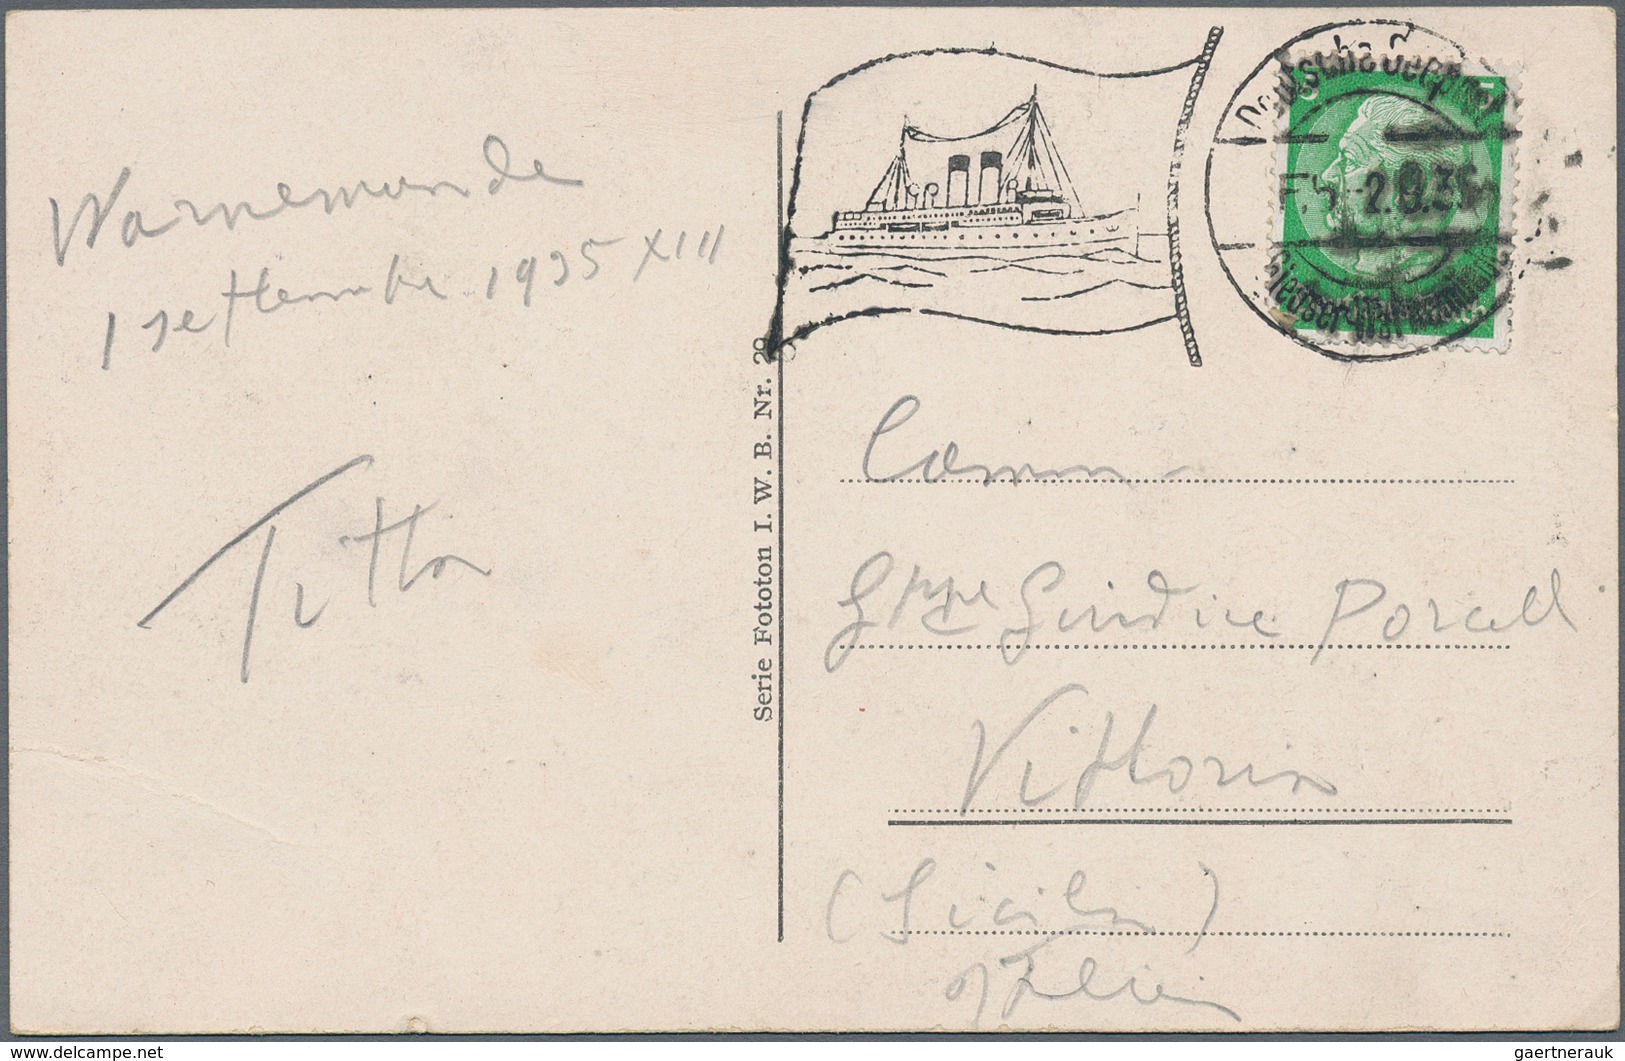 Warnemunde
1 settembre 1935 XIII
Titta
Serie Fototon I. W. B. Nr. 29
Deutsche Seepost
2.9.35
Gjedser-Warnemünde
5
Comm
Gppe Giudice Porcelli
Vittoria
(Sicilia)
Italien
delcampe.net
gaertnerauk